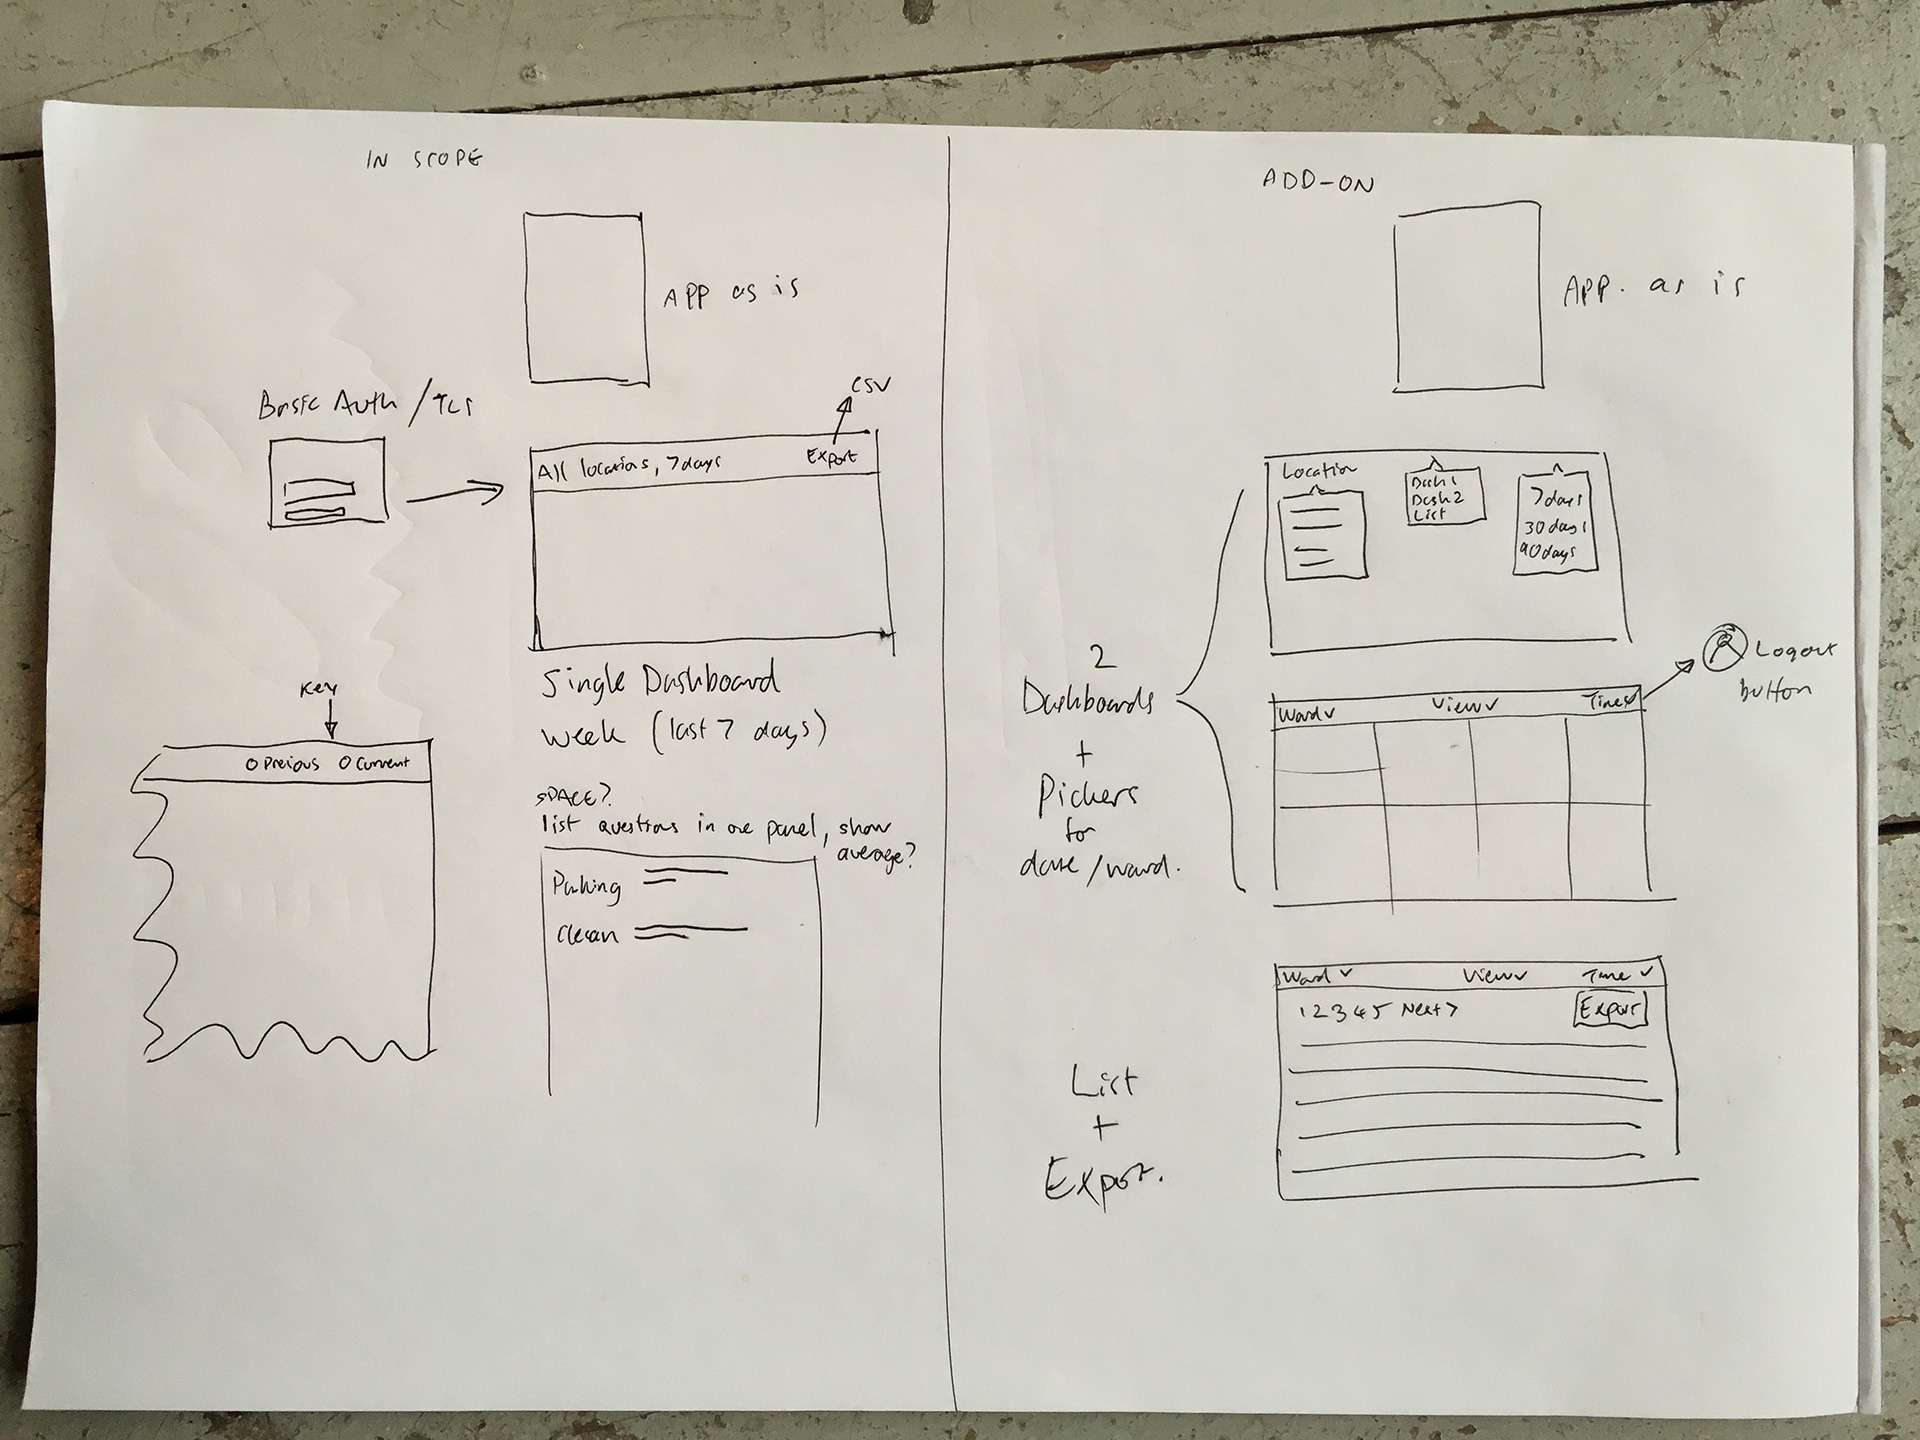 IN SCOPE
APP as is
Basic Auth /
CSV
All locations, 7days
Export
Single Dashboard
week (last 7 days)
key
O Previous O Current
SPACE?
list questions in one panel, show
average?
Parking
Clean
ADD-ON
APP. as is
Location
Dash 1
Dash 2
List
7days
30days
90days
2
Dashboards
+
Pickers
for
date/ward.
Logout
button
Ward ˅ View ˅ Time ˅
Ward ˅ View ˅ Time ˅
1 2 3 4 5 Next >
Export
List
+
Export.